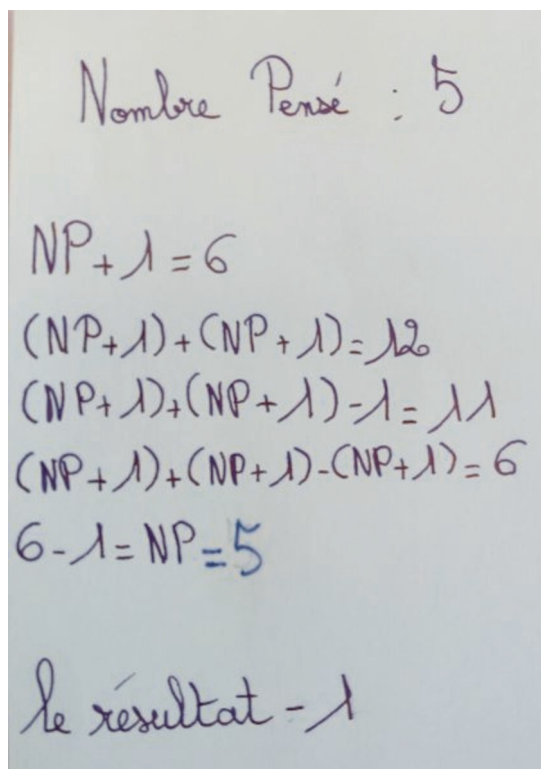 Nombre Pensé : 5
NP + 1 = 6
(NP+1)+(NP+1)=12
(NP+1)+(NP+1)-1=11
(NP+1)+(NP+1)-(NP+1)=6
6-1=NP=5
le résultat - 1